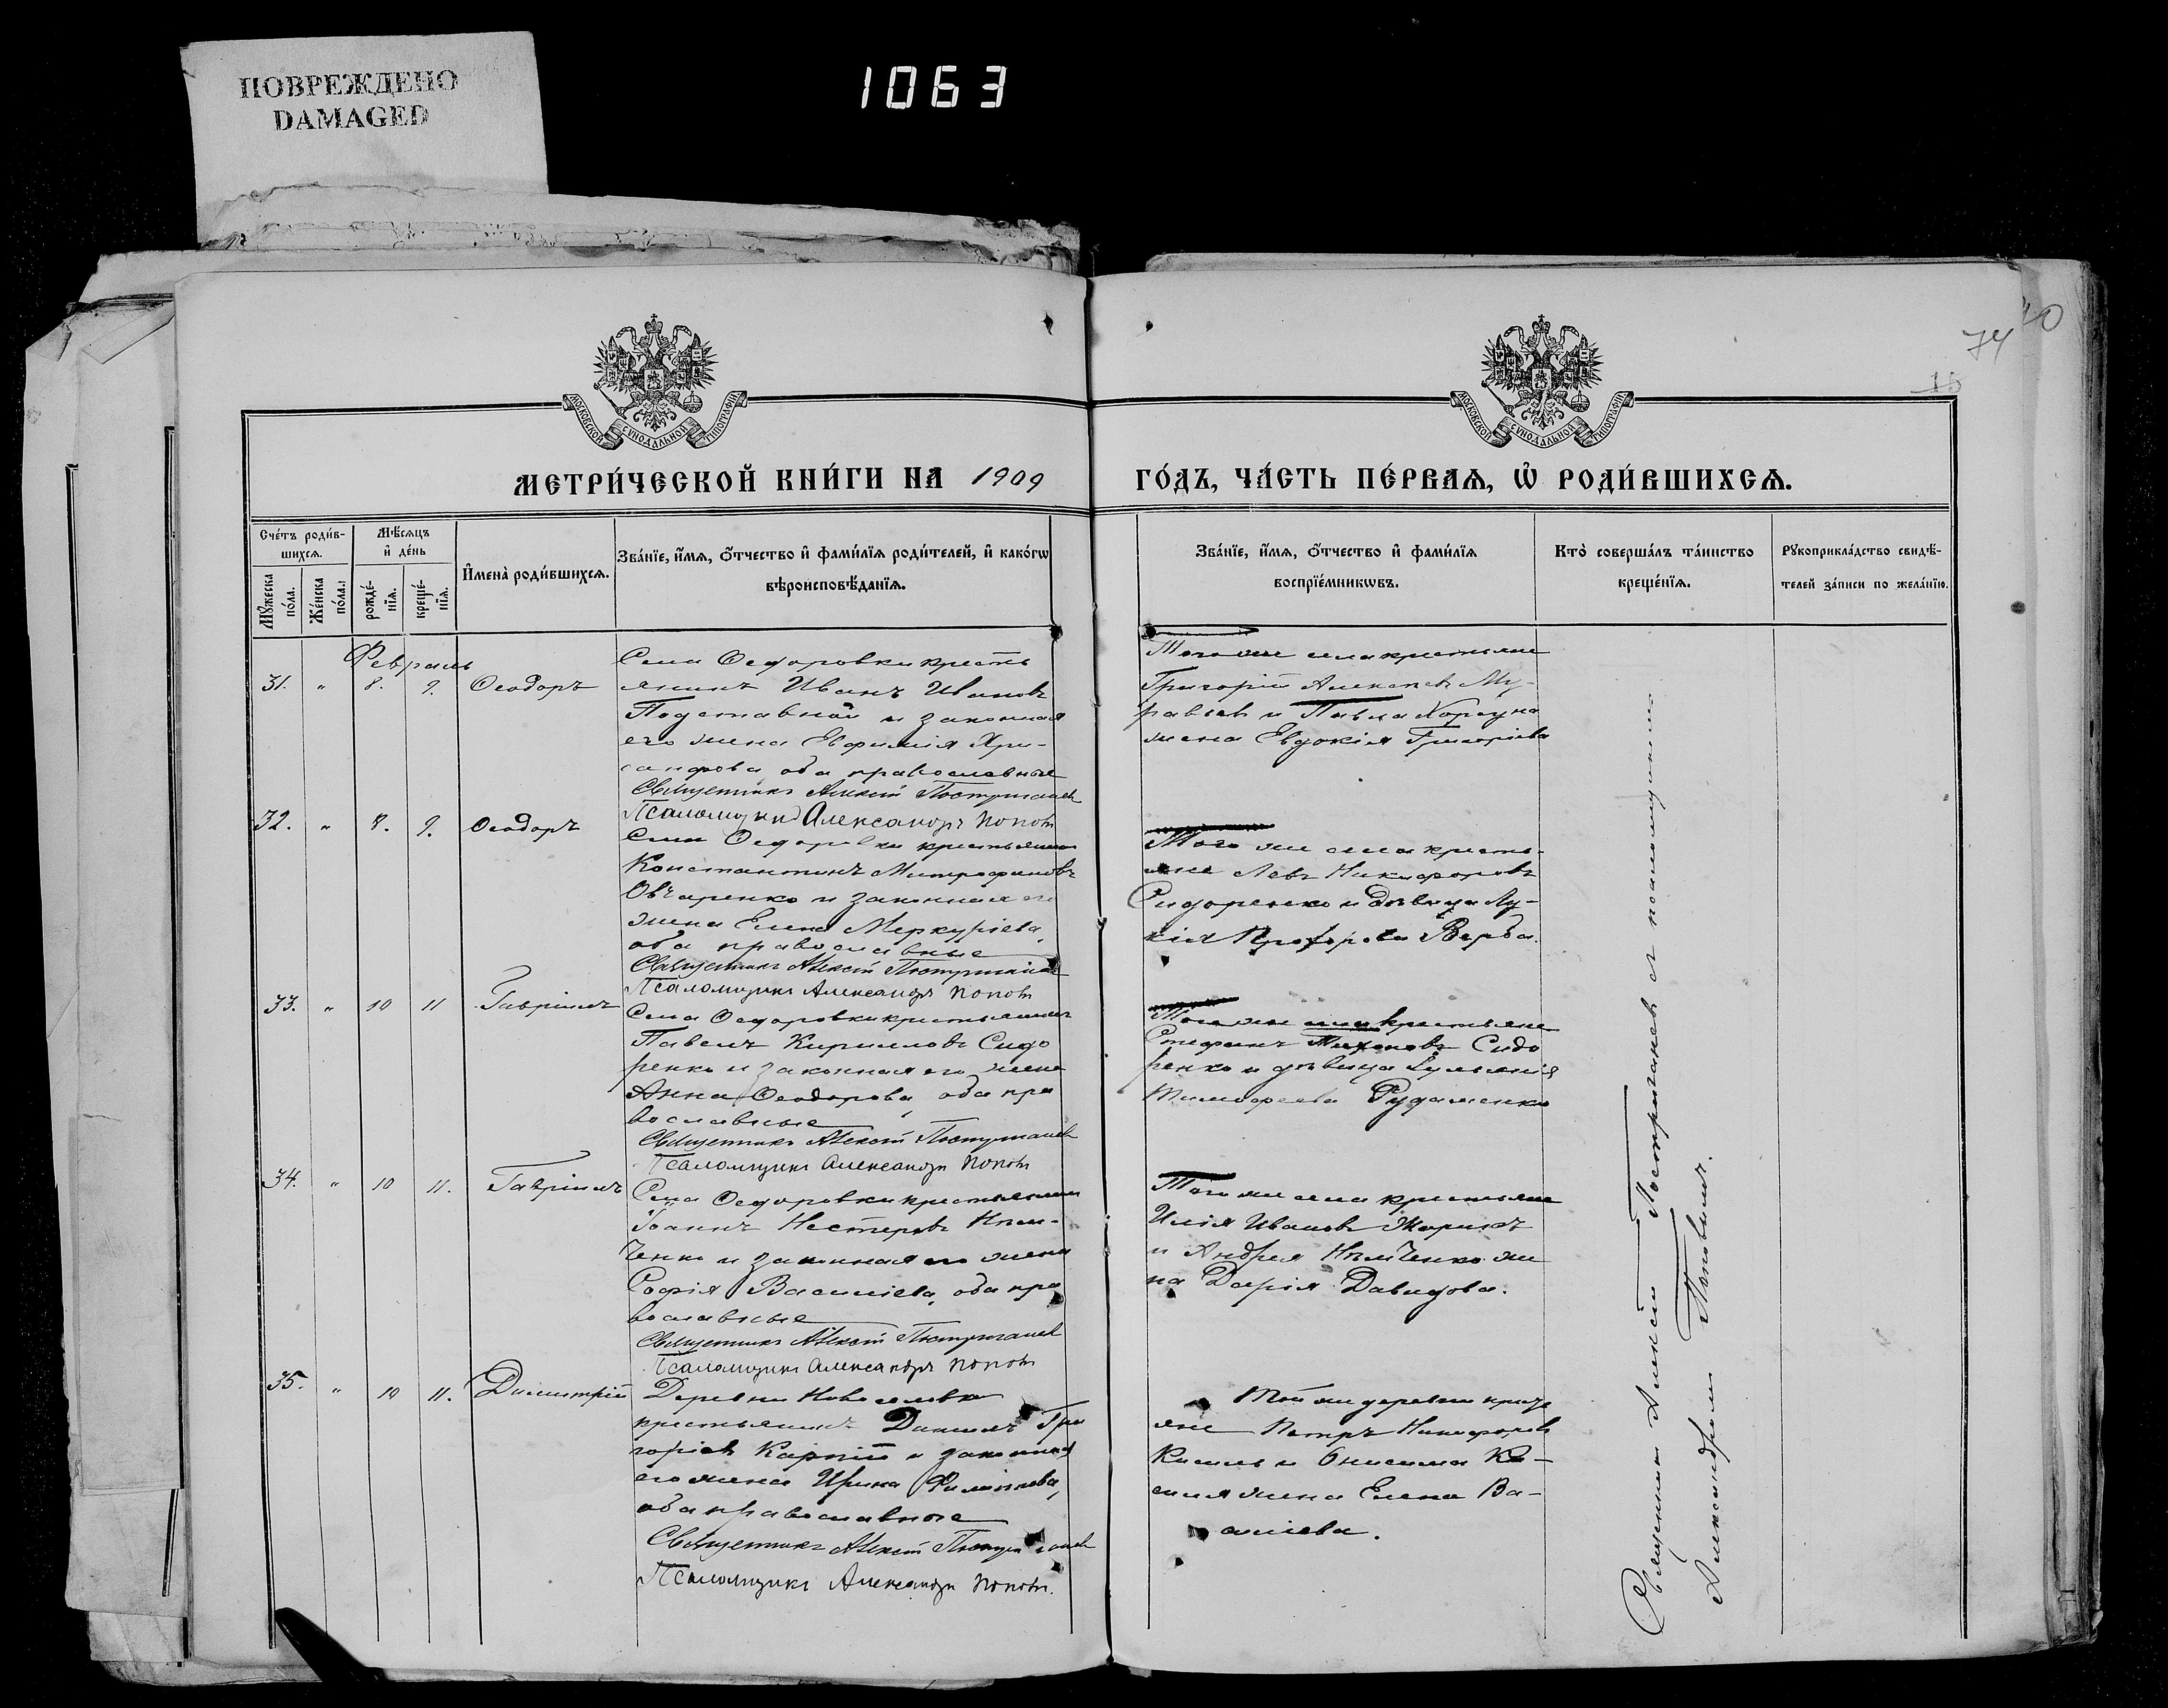 ПОВРЕЖДЕНО
DAMAGED
1063
40
74
15
МОСКОВСКОЙ СѴНОДАЛЬНОЙ ТИПОГРАФІИ
МОСКОВСКОЙ СѴНОДАЛЬНОЙ ТИПОГРАФІИ
МЕТРИ́ЧЕСКОЙ КНИ́ГИ НА 1909
ГО́ДЪ, ЧА́СТЬ ПЕ́РВАѦ, Ѡ҆ РОДИ́ВШИХСѦ.
Сче́тъ роди́в-
шихсѧ.
Мꙋ́жеска
по́ла.
Же́нска
по́ла.
Мѣ́сѧцъ
и҆ де́нь
рожде́-
нїѧ.
креще́-
нїѧ.
И҆мена̀ роди́вшихсѧ.
Зва́нїе, и҆́мѧ, ѻ҆́тчество и҆ фами́лїѧ роди́телей, и҆ како́гѡ
вѣроисповѣ́данїѧ.
Зва́нїе, и҆́мѧ, ѻ҆́тчество и҆ фами́лїѧ
воспрїе́мникѡвъ.
Кто̀ соверша́лъ та́инство
креще́нїѧ.
Рꙋкоприкла́дство свидѣ́-
телей за́писи по жела́нїю.
Февраль
31. " 8. 9. Ѳеодоръ
Села Ѳедоровки кресть
янинъ Иванъ Ивановъ
Подставной и законная
его жена Евфимія Хри-
санфова оба православные
Священникъ Алексій Постригачев
Псаломщикъ Александръ Попов
Того же села крестьяне
Григорій Алексѣев Му-
равьев и Павла Корсуна
жена Евдокія Григоріева
32. " 8. 9. Ѳеодоръ
Села Ѳедоровки крестьянинъ
Константинъ Митрофановъ
Овчаренко и законная его
жена Елена Меркуріева,
оба православные
Священникъ Алексій Постригачев
Псаломщикъ Александръ Попов
Того же села кресть-
яне Левъ Никифоровъ
Сидоренко и дѣвица Лу-
кія Прохорова Верба.
33. " 10 11 Гавріилъ
Села Ѳедоровки крестьянинъ
Павелъ Кирилловъ Сидо
ренко и законная его жена
Анна Ѳеодорова, оба пра
вославные
Священникъ Алексій Постригачев
Псаломщикъ Александръ Попов
Того же села крестьяне
Стефанъ Тихоновъ Сидо
ренко и дѣвица Іуліанія
Тимофеева Рудаменко
34. " 10 11. Гавріилъ
Села Ѳедоровки крестьянинъ
Іоаннъ Нестеровъ Нѣм-
ченко и законная его жена
Софія Василіева, оба пра
вославные
Священникъ Алексій Постригачев
Псаломщикъ Александръ Попов
Того же села крестьяне
Илія Ивановъ
и Андрея Нѣмченко же
на Дарія Давидова.
35. " 10 11. Димитрій
Деревни Новоселовки
крестьянинъ Даніилъ Гри
горіев Карпій и законная
его жена Ирина Филиппова,
оба православные
Священникъ Алексій Постригачев
Псаломщикъ Александръ Попов.
Той же деревни крестья
яне Петръ Никифоров
Кисиль и Онисима Ки-
силя жена Елена Ва-
силіева.
Священникъ Алексій Постригачевъ съ псаломщикомъ
Александромъ Поповымъ.